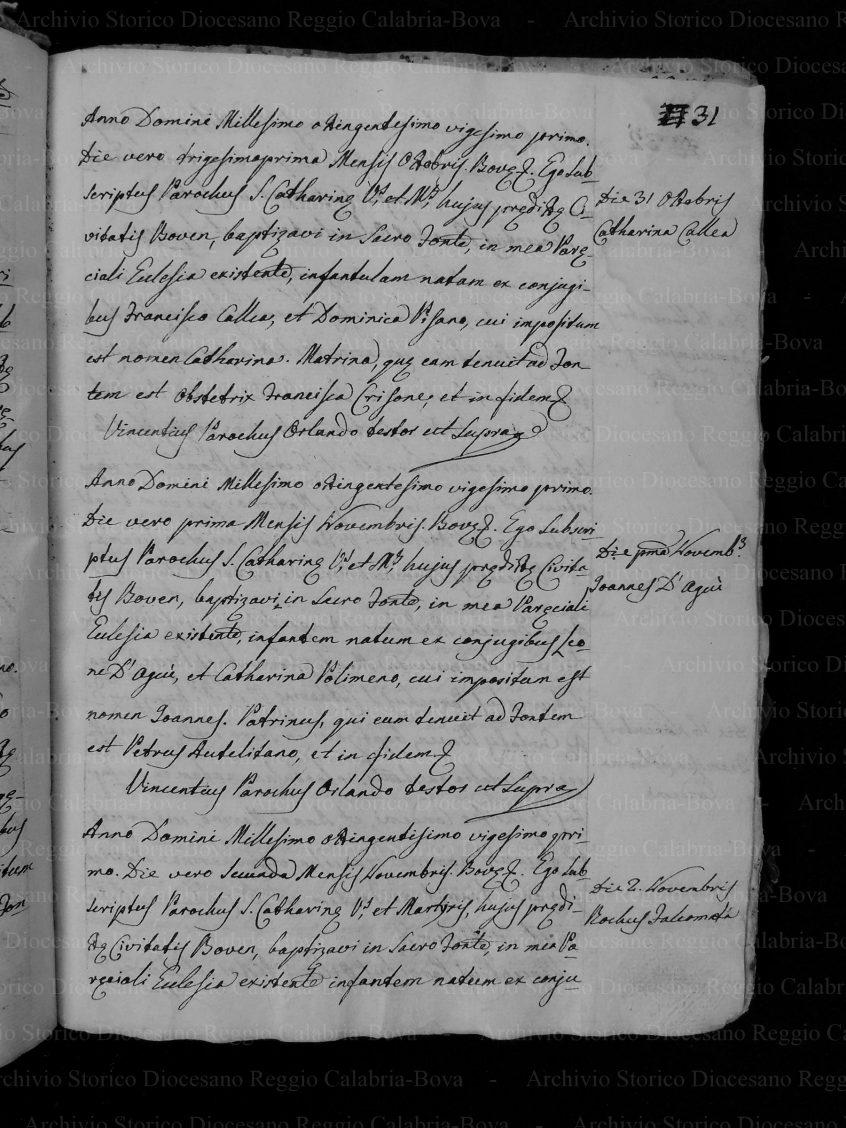 31
Anno Domini Millesimo octingentesimo vigesimo primo.
Die vero trigesimaprima Mensis Octobris. Bovę. Ego Sub-
scriptus Parochus S. Catharinę V.s et M.s hujus prędictę Ci-
vitatis Boven, baptizavi in Sacro Fonte, in mea Parę-
ciali Eclesia existente, infantulam natam ex conjugi-
bus Francisco Callea, et Dominica Pisano, cui impositum
est nomen Catharina. Matrina, quę eam tenuit ad Fon
tem est Obstetrix Francisca Crisone, et in fidem
Vincentius Parochus Orlando testor ut Supra
Die 31 Octobris
Catharina Callea
Anno Domini Millesimo octingentesimo vigesimo primo.
Die vero prima Mensis Novembris. Bovę. Ego Subscri
ptus Parochus S. Catharinę V.s et M.s hujus prędictę Civita-
tis Boven, baptizavi in Sacro Fonte, in mea Paręciali
Eclesia existente, infantem natum ex conjugibus Leo-
ne D'Aguì, et Catharina Polimeno, cui impositum est
nomen Joannes. Patrinus, qui eum tenuit ad Fontem
est Petrus Autelitano, et in fidem
Vincentius Parochus Orlando testor ut Supra
Die pma Novemb.s
Joannes D'Aguì
Anno Domini Millesimo octingentisimo vigesimo pri-
mo. Die vero Secunda Mensis Novembris. Bovę. Ego Sub
scriptus Parochus S. Catharinę V.s et Martyris, hujus prędi-
ctę Civitatis Boven, baptizavi in Sacro Fonte, in mea Pa
ręciali Eclesia existente infantem natum ex conju-
Die 2. Novembris
Rochus Falcomatà
Archivio Storico Diocesano Reggio Calabria-Bova